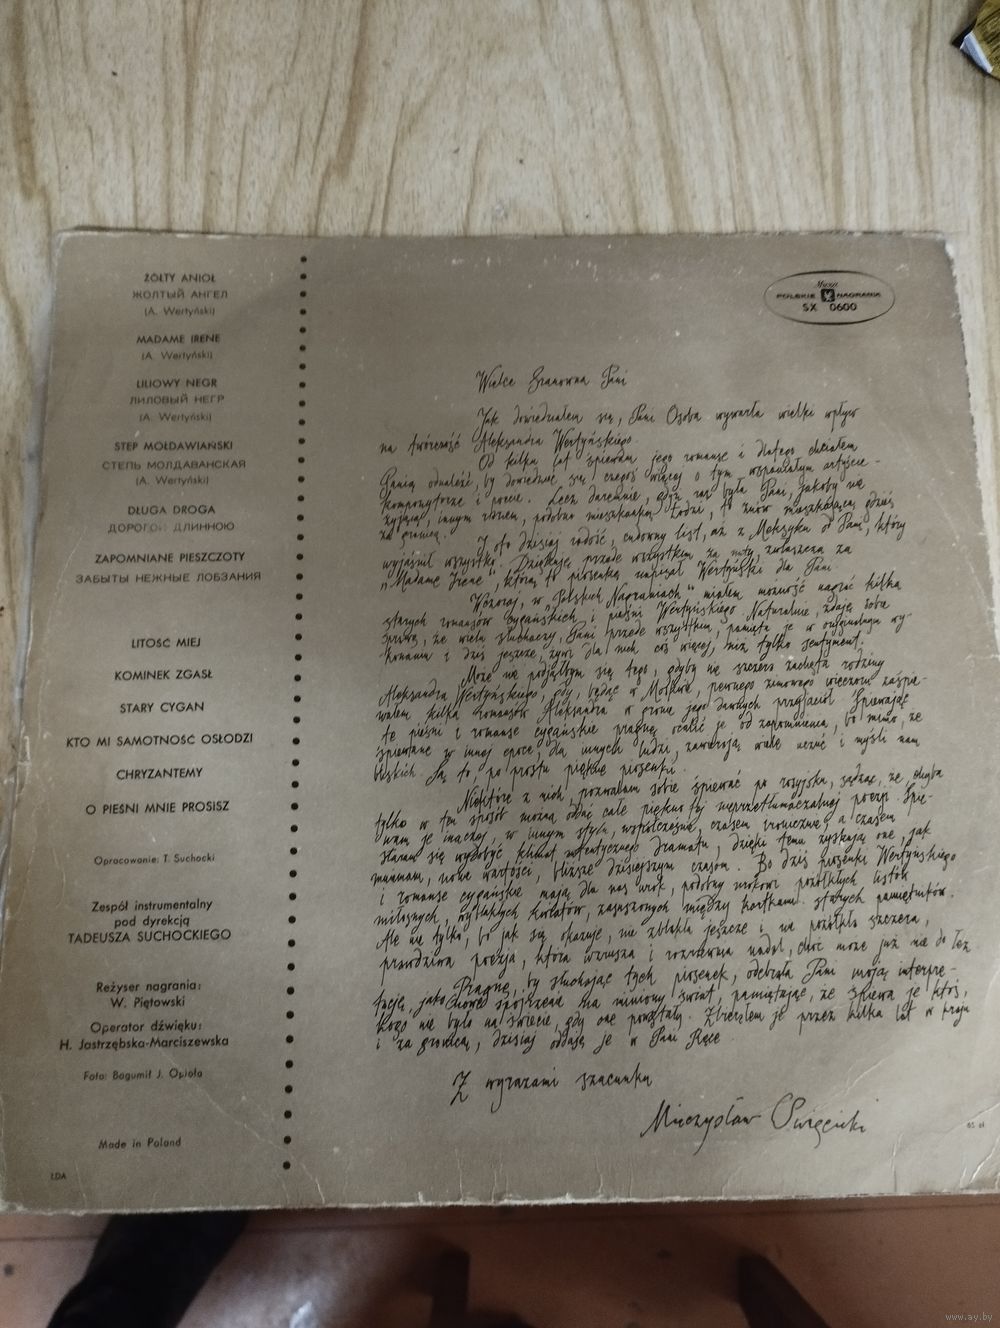 ŻÓŁTY ANIOŁ
ЖОЛТЫЙ АНГЕЛ
(A. Wertyński)
MADAME IRENE
(A. Wertyński)
LILIOWY NEGR
ЛИЛОВЫЙ НЕГР
(A. Wertyński)
STEP MOŁDAWIAŃSKI
СТЕПЬ МОЛДАВАНСКАЯ
(A. Wertyński)
DŁUGA DROGA
ДОРОГОЙ ДЛИННОЮ
ZAPOMNIANE PIESZCZOTY
ЗАБЫТЫ НЕЖНЫЕ ЛОБЗАНИЯ
LITOŚĆ MIEJ
KOMINEK ZGASŁ
STARY CYGAN
KTO MI SAMOTNOŚĆ OSŁODZI
CHRYZANTEMY
O PIEŚNI MNIE PROSISZ
Opracowanie: T. Suchocki
Zespół instrumentalny
pod dyrekcją
TADEUSZA SUCHOCKIEGO
Reżyser nagrania:
W. Piętowski
Operator dźwięku:
H. Jastrzębska-Marciszewska
Foto: Bogumił J. Opioła
Made in Poland
ŁDA
Muza
POLSKIE NAGRANIA
SX 0600
Wielce Szanowna Pani
Jak dowiedziałem się, Pani Osoba wywarła wielki wpływ
na twórczość Aleksandra Wertyńskiego.
Od kilku lat śpiewam jego romanse i dlatego chciałem
Panią odnaleźć, by dowiedzieć się czegoś więcej o tym wspaniałym artyście-
kompozytorze i poecie. Lecz daremnie, gdyż raz była Pani, jakoby nie
żyjąca, innym razem, podobno mieszkanką Łodzi, to znów mieszkającą gdzieś
za granicą.
I oto dzisiaj radość, cudowny list, aż z Meksyku od Pani, który
wyjaśnił wszystko. Dziękuję przede wszystkim za nuty, zwłaszcza za
"Madame Irene", którą to piosenkę napisał Wertyński dla Pani.
Wczoraj, w "Polskich Nagraniach" miałem możność nagrać kilka
starych romansów cygańskich i pieśni Wertyńskiego. Naturalnie, zdaję sobie
sprawę, że wielu słuchaczy, Pani przede wszystkim, pamięta je w oryginalnym wy-
konaniu i dziś jeszcze, żywi dla nich coś więcej, niż tylko sentyment.
Może nie podjąłbym się tego, gdyby nie szczera zachęta rodziny
Aleksandra Wertyńskiego, gdy, będąc w Moskwie, pewnego zimowego wieczoru zaśpie-
wałem kilka romansów Aleksandra w gronie jego dawnych przyjaciół. Śpiewając
te pieśni i romanse cygańskie pragnę ocalić je od zapomnienia, bo mimo, że
śpiewane w innej epoce, dla innych ludzi, zawierają wiele uczuć i myśli nam
bliskich. Są to, po prostu piękne piosenki.
Niektóre z nich, pozwalam sobie śpiewać po rosyjsku, sądząc, że chyba
tylko w ten sposób można oddać całe piękno tej nieprzetłumaczalnej poezji. Śpie-
wam je inaczej, w innym stylu, współcześnie, czasem ironicznie, a czasem
staram się wydobyć klimat autentycznego dramatu, dzięki temu zyskują one, jak
mniemam, nowe wartości, bliższe dzisiejszym czasom. Bo dziś piosenki Wertyńskiego
i romanse cygańskie mają dla nas urok, podobny urokowi pożółkłych listów
miłosnych, wyblakłych kwiatów, zasuszonych między kartkami starych pamiętników.
Ale nie tylko, bo jak się okazuje, nie zblakła jeszcze i nie pożółkła szczera,
prawdziwa poezja, która wzrusza i rozrzewnia nadal, choć może już nie do łez.
Pragnę, by słuchając tych piosenek, odebrała Pani moją interpre-
tację, jako nowe spojrzenie na miniony świat, pamiętając, że śpiewa je ktoś,
kogo nie było na świecie, gdy one powstały. Zbierałem je przez kilka lat w kraju
i za granicą, dzisiaj oddaję je w Pani Ręce.
Z wyrazami szacunku
Mieczysław Święcicki
65 zł
www.ay.by